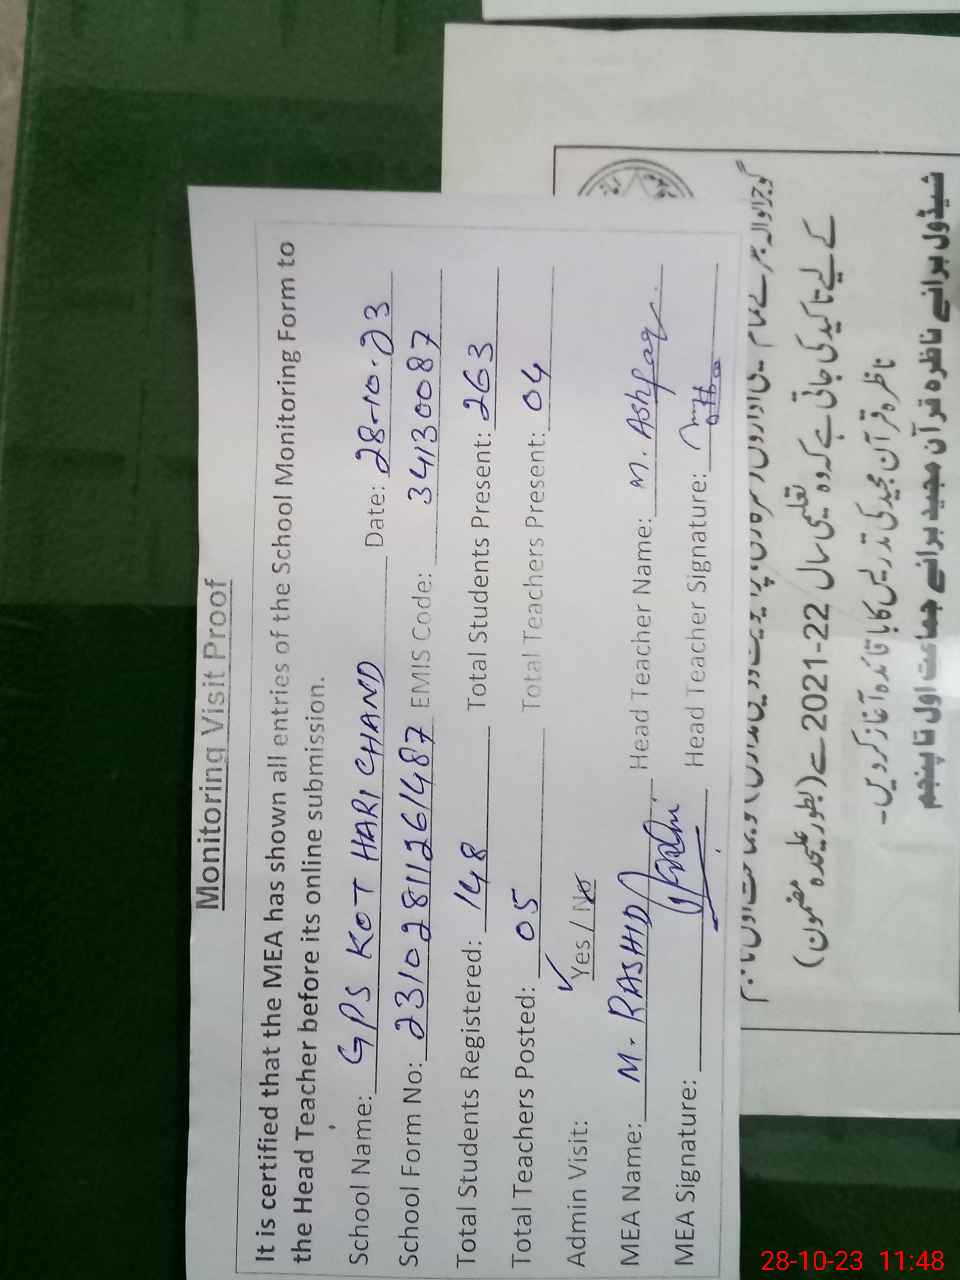 Monitoring Visit Proof
It is certified that the MEA has shown all entries of the School Monitoring Form to
the Head Teacher before its online submission.
School Name: GPS KOT HARI CHAND Date: 28-10-23
School Form No: 23102811261487 EMIS Code: 34130087
Total Students Registered: 148 Total Students Present: 263
Total Teachers Posted: 05 Total Teachers Present: 04
Admin Visit: Yes / No
MEA Name: M. RASHID Head Teacher Name: M. Ashfaq
MEA Signature: Head Teacher Signature:
کے لیے تاکید کی جاتی ہے کہ وہ تعلیمی سال 2021-22 سے (بطور علیحدہ مضمون)
ناظرہ قرآن مجید کی تدریس کا باقاعدہ آغاز کردیں۔
شیڈول برائے ناظرہ قرآن مجید برائے جماعت اول تا پنجم
28-10-23 11:48